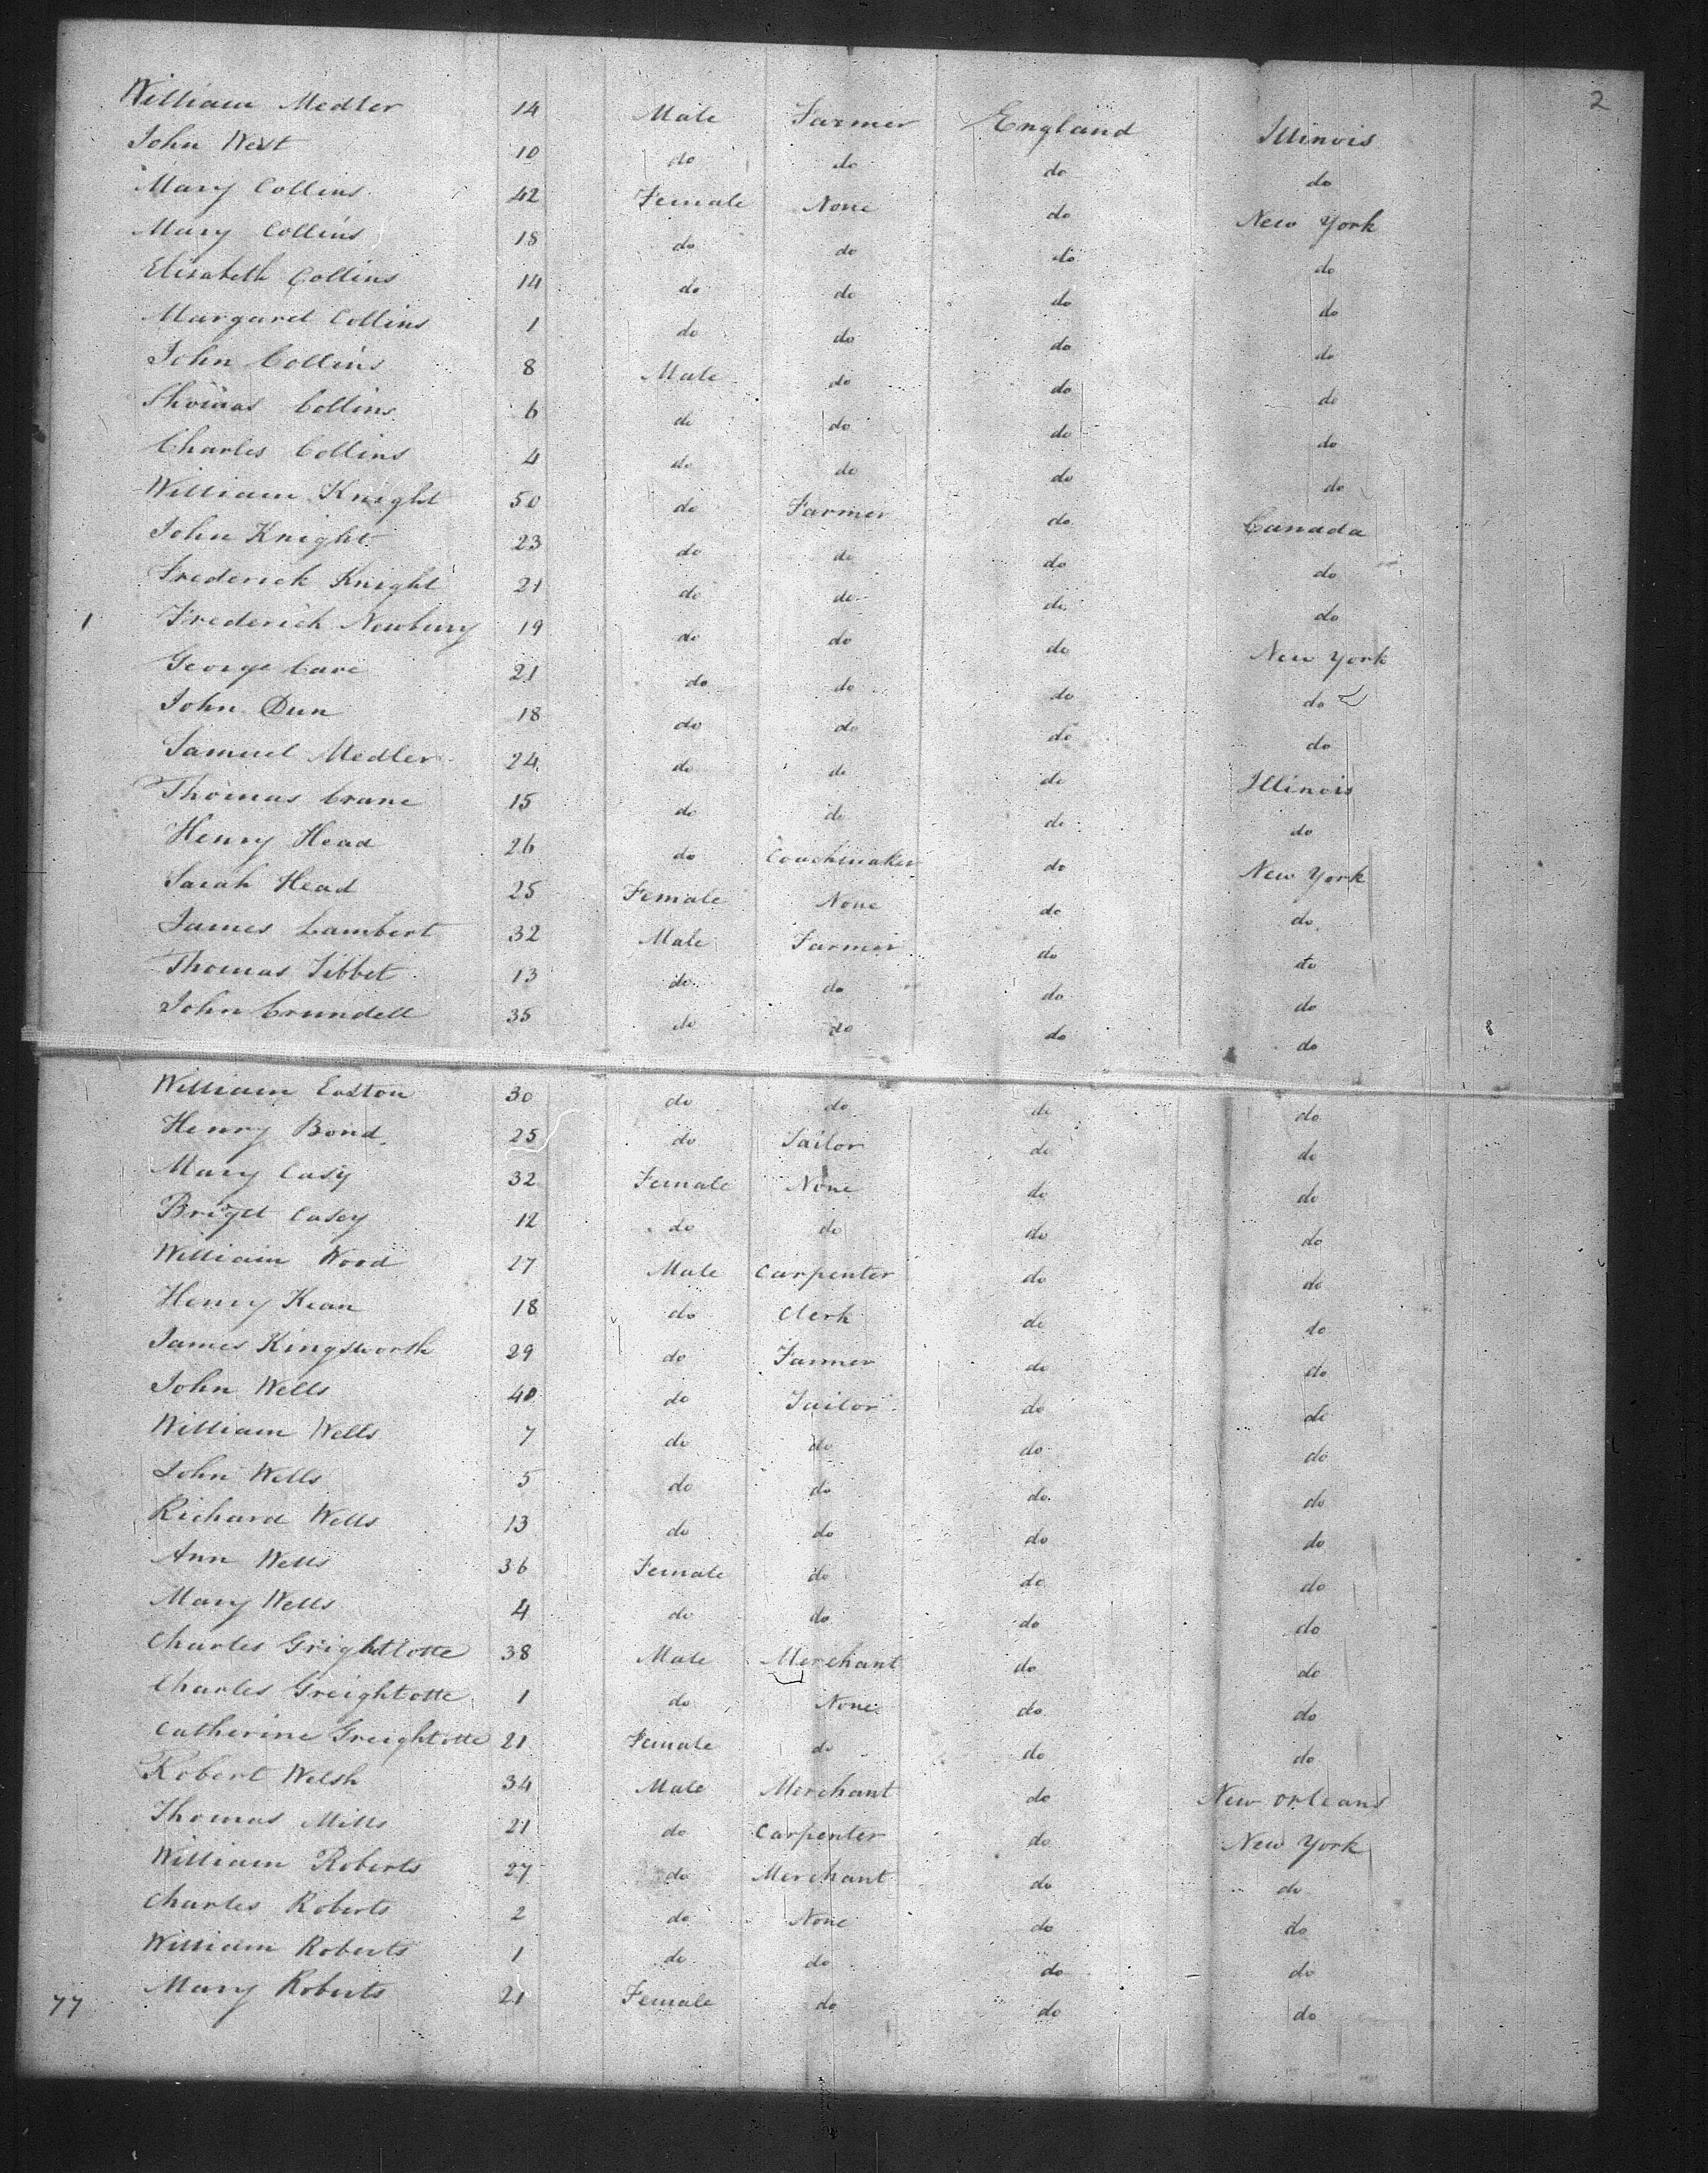 2
William Medler 14 Male Farmer England Illinois
John West 10 do do do do
Mary Collins 42 Female None do New York
Mary Collins 18 do do do do
Elisabeth Collins 14 do do do do
Margaret Collins 1 do do do do
John Collins 8 Male do do do
Thomas Collins 6 do do do do
Charles Collins 4 do do do do
William Knight 50 do Farmer do Canada
John Knight 23 do do do do
Frederick Knight 21 do do do do
1 Frederich Newbury 19 do do do New York
George Cave 21 do do do do
John Dun 18 do do do do
Samuel Medler 24 do do do Illinois
Thomas Crane 15 do do do do
Henry Head 26 do Coachmaker do New York
Sarah Head 25 Female None do do
James Lambert 32 Male Farmer do do
Thomas Tibbet 13 do do do do
John Crundell 35 do do do do
William Easton 30 do do do do
Henry Bond 25 do Tailor do do
Mary Casy 32 Female None do do
Briget Casey 12 do do do do
William Wood 27 Male Carpenter do do
Henry Kean 18 do Clerk do do
James Kingsworth 29 do Farmer do do
John Wells 40 do Tailor do do
William Wells 7 do do do do
John Wells 5 do do do do
Richard Wells 13 do do do do
Ann Wells 36 Female do do do
Mary Wells 4 do do do do
Charles Grightlotte 38 Male Merchant do do
Charles Greightotte 1 do None do do
Catherine Greightotte 21 Female do do do
Robert Welsh 34 Male Merchant do New Orleans
Thomas Mills 21 do Carpenter do New York
William Roberts 27 do Merchant do do
Charles Roberts 2 do None do do
William Roberts 1 do do do do
77 Mary Roberts 21 Female do do do